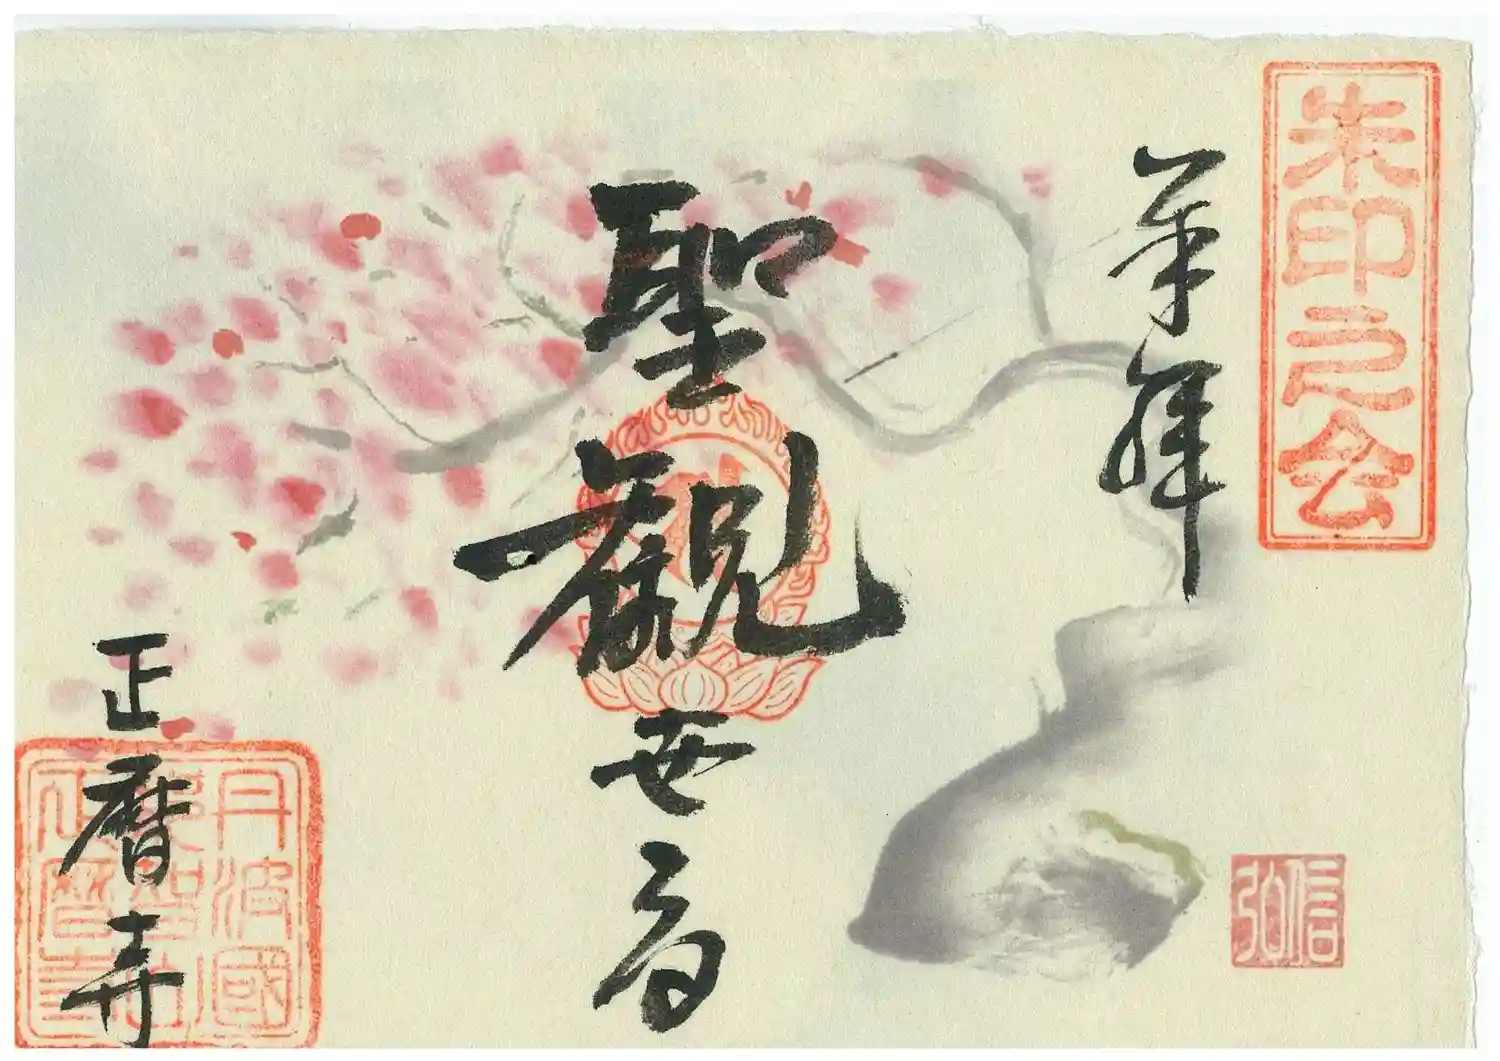 朱印之会
奉拝
聖観世音
正暦寺
丹波國
正暦寺
信弘